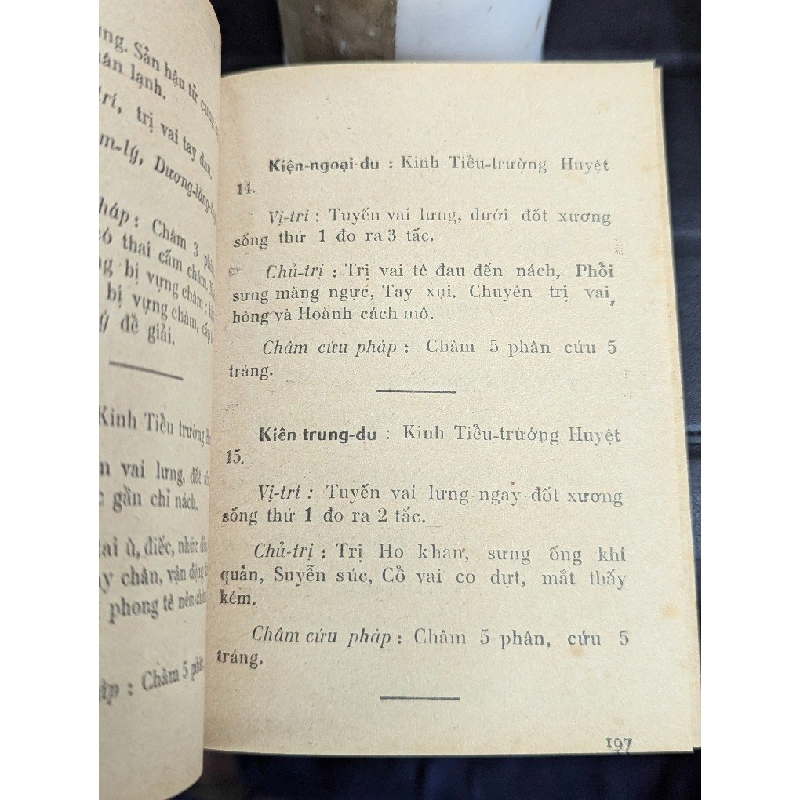 ung. Sản hậu tử cung
ân lạnh.
trí, trị vai tay đau.
m-lý, Dương-lăng-
háp : Châm 3 phâ
có thai cấm châm.
g bị vựng châm :
bị vựng châm, cấp
ý để giải.
Kinh Tiểu trường
n vai lưng, đốt
c gần chỉ nách.
tai ù, điếc, nhức
y chân, vận động
phong tê nên châ
áp : Châm 5 phâ
Kiện-ngoại-du : Kinh Tiểu-trường Huyệt
14.
Vị-trí : Tuyến vai lưng, dưới đốt xương
sống thứ 1 đo ra 3 tấc.
Chủ-trị : Trị vai tê đau đến nách, Phổi
sưng màng ngực, Tay xụi. Chuyên trị vai,
hông và Hoành cách mô.
Châm cứu pháp : Châm 5 phân cứu 5
tráng.
Kiên-trung-du : Kinh Tiểu-trường Huyệt
15.
Vị-trí : Tuyến vai lưng ngay đốt xương
sống thứ 1 đo ra 2 tấc.
Chủ-trị : Trị Ho khan, sưng ống khí
quản, Suyễn súc, Cổ vai co dựt, mắt thấy
kém.
Châm cứu pháp : Châm 5 phân, cứu 5
tráng.
197